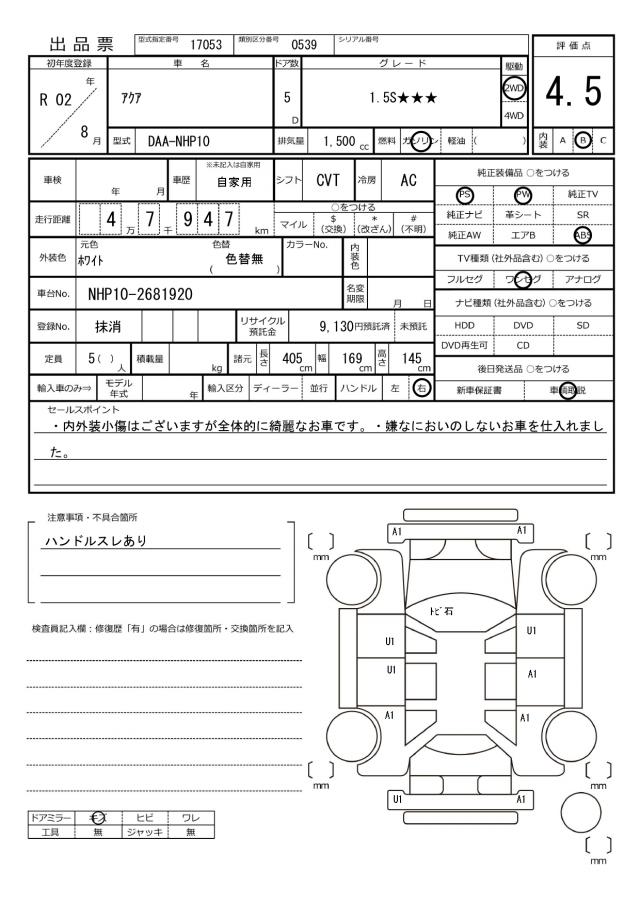 出品票 型式指定番号 17053 類別区分番号 0539 シリアル番号
評価点
4.5
内装 A B C
初年度登録 車名 ドア数 グレード 駆動
R 02 年 8 月
ｱｸｱ
5 D
1.5S★★★
2WD
4WD
型式 DAA-NHP10 排気量 1,500 cc 燃料 ガソリン 軽油 ( )
車検 年 月 車歴 ※未記入は自家用 自家用 シフト CVT 冷房 AC
走行距離 4 万 7 千 9 4 7 km
○をつける
マイル $(交換) *(改ざん) #(不明)
外装色 元色 ﾎﾜｲﾄ 色替 ( 色替無 ) カラーNo. 内装色
車台No. NHP10-2681920 名変期限 月 日
登録No. 抹消 リサイクル預託金 9,130円預託済 未預託
定員 5( )人 積載量 kg 諸元 長さ 405cm 幅 169cm 高さ 145cm
輸入車のみ⇒ モデル年式 年 輸入区分 ディーラー 並行 ハンドル 左 右
純正装備品 ○をつける
PS PW 純正TV
純正ナビ 革シート SR
純正AW エアB ABS
TV種類(社外品含む)○をつける
フルセグ ワンセグ アナログ
ナビ種類(社外品含む)○をつける
HDD DVD SD
DVD再生可 CD
後日発送品 ○をつける
新車保証書 車輌取説
セールスポイント
・内外装小傷はございますが全体的に綺麗なお車です。・嫌なにおいのしないお車を仕入れまし
た。
注意事項・不具合箇所
ハンドルスレあり
検査員記入欄：修復歴「有」の場合は修復箇所・交換箇所を記入
ドアミラー キズ ヒビ ワレ
工具 無 ジャッキ 無
A1 A1
[ ] mm [ ] mm
ﾄﾋﾞ石
U1 U1
U1 A1
A1 A1
[ ] mm [ ] mm
U1 A1
[ ] mm